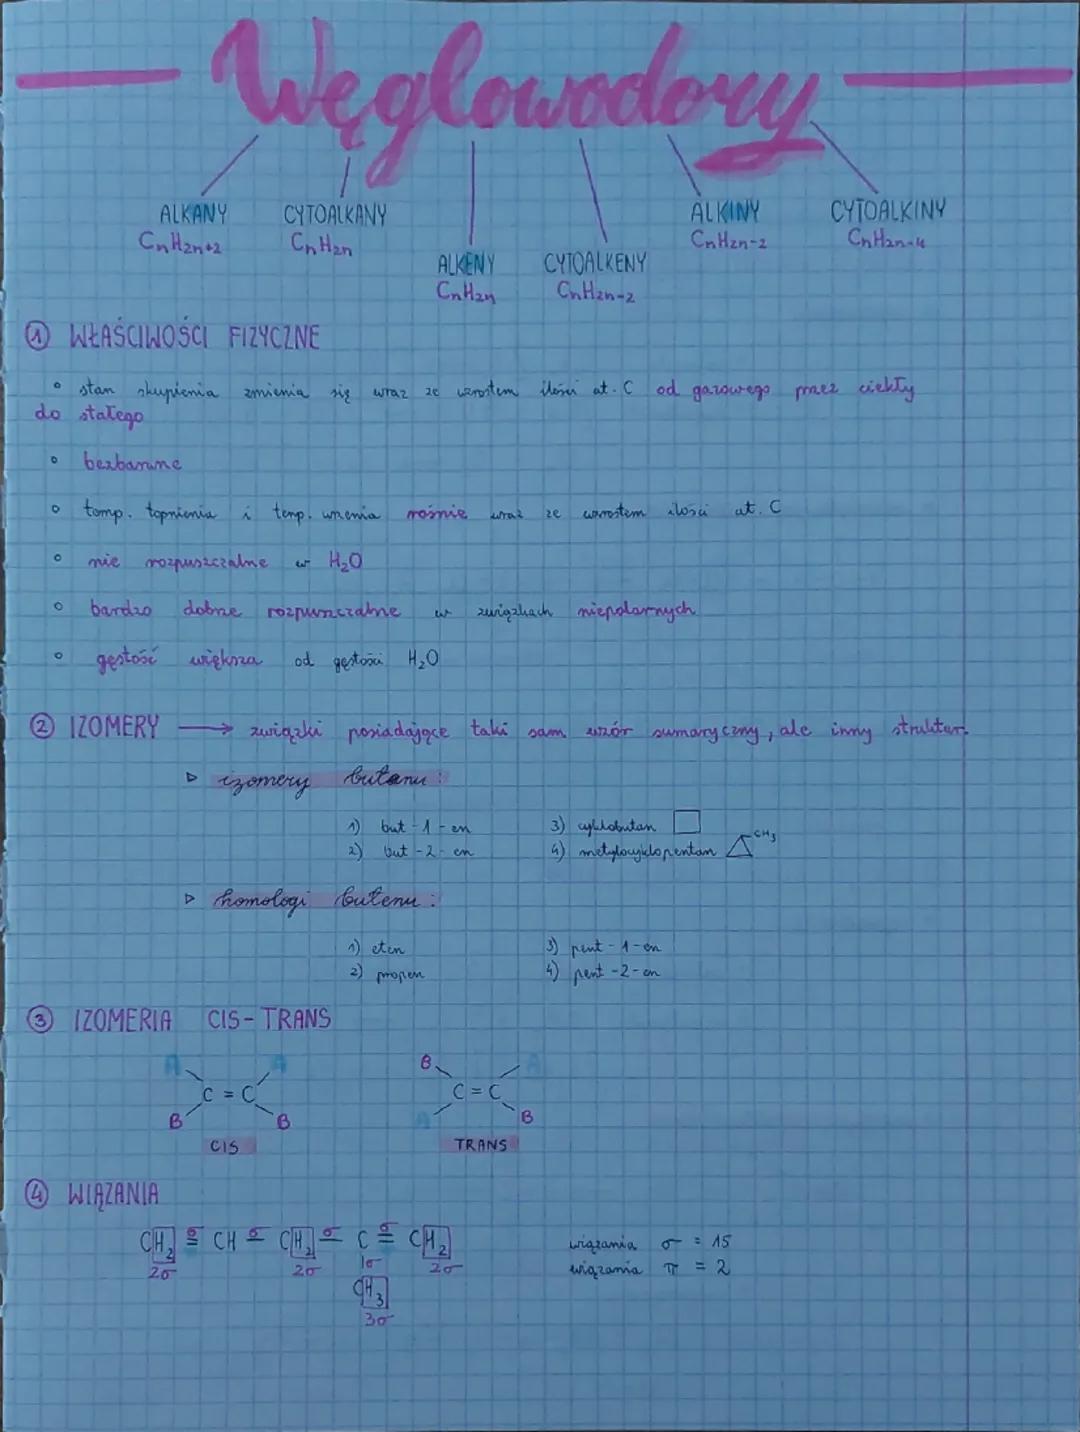 Węglowodory
ALKANY CYTOALKANY ALKINY CYTOALKINY
CnH2n+2 CnH2n CnH2n-2 CnH2n-4
ALKENY CYTOALKENY
CnH2n CnH2n-2
① WŁAŚCIWOŚCI FIZYCZNE
° stan skupienia zmienia się wraz ze wzrostem ilości at. C od gazowego przez ciekły
do stałego
° bezbarwne
° temp. topnienia i temp. wrzenia rośnie wraz ze wzrostem ilości at. C
° nie rozpuszczalne w H₂O
° bardzo dobrze rozpuszczalne w związkach niepolarnych
° gęstość większa od gęstości H₂O
② IZOMERY → związki posiadające taki sam wzór sumaryczny, ale inny struktur.
▷ izomery butanu:
1) but-1-en 3) cyklobutan
2) but-2-en 4) metylocyklopentan CH₃
▷ homologi butenu:
1) eten 3) pent-1-en
2) propen 4) pent-2-en
③ IZOMERIA CIS-TRANS
A A B A
C = C C = C
B B A B
CIS TRANS
④ WIĄZANIA
CH₂ σ= CH σ- CH₂ σ- C σ= CH₂ wiązania σ = 15
2σ 2σ 1σ 2σ wiązania π = 2
CH₃
3σ